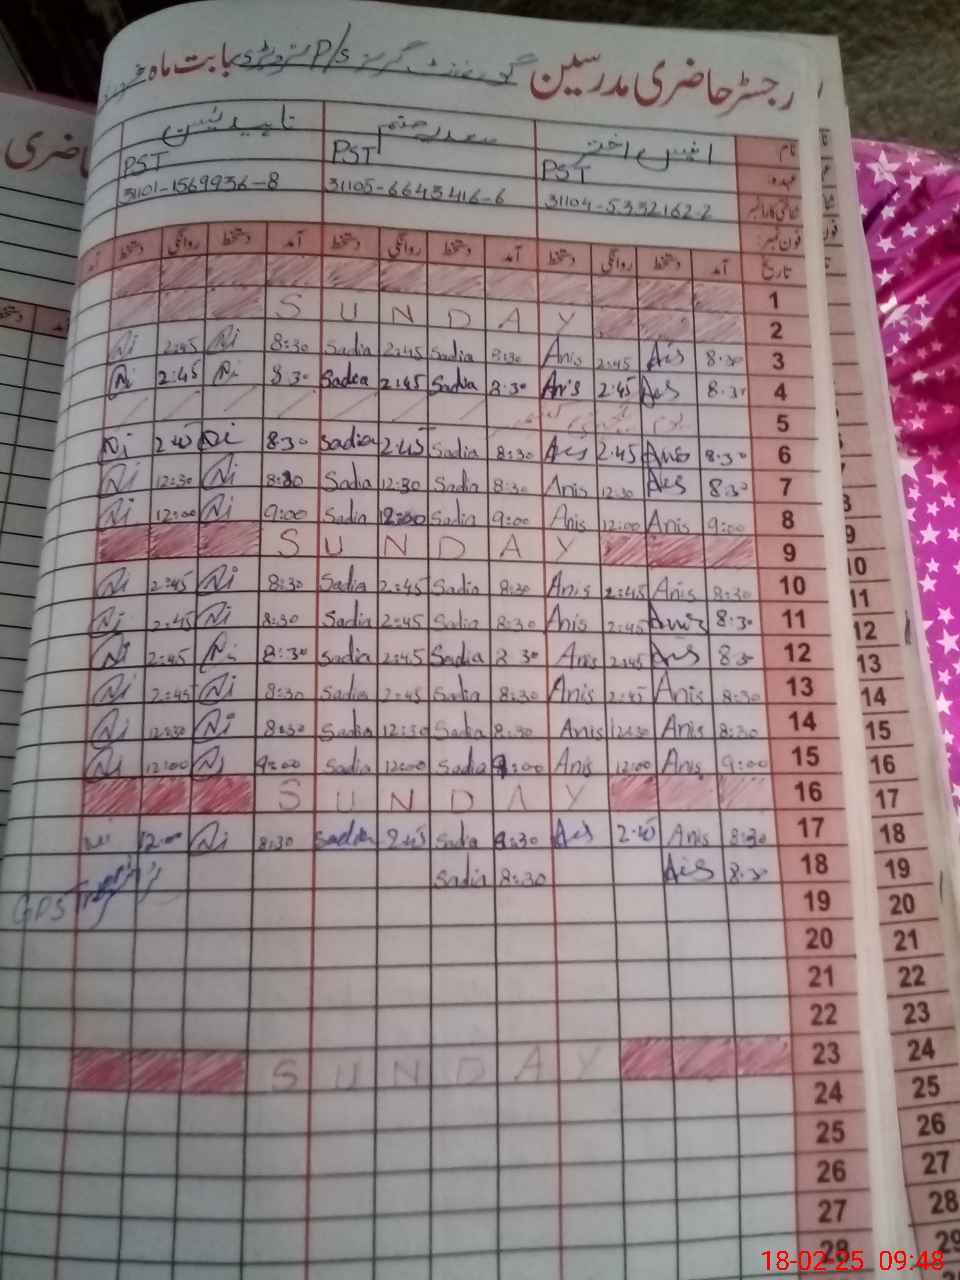 رجسٹر حاضری مدرسین گورنمنٹ گرلز P/s بابت ماہ
نام انیس اختر سعدیہ ناہید
عہدہ PST PST PST
شناختی کارڈ نمبر 31104-5332162-2 31105-6643416-6 31101-1569936-8
فون نمبر:
تاریخ آمد دستخط روانگی دستخط آمد دستخط روانگی دستخط آمد دستخط روانگی دستخط
1
S U N D A Y 2
Ni 2:45 Ni 8:30 Sadia 2:45 Sadia 8:30 Anis 2:45 Ais 8:30 3
Ni 2:45 Ni 8:30 Sadia 2:45 Sadia 8:30 Anis 2:45 Aes 8:30 4
5
Ni 2:45 Ni 8:30 Sadia 2:45 Sadia 8:30 Aes 2:45 Anis 8:30 6
Ni 12:30 Ni 8:30 Sadia 12:30 Sadia 8:30 Anis 12:30 Aes 8:30 7
Ni 12:00 Ni 9:00 Sadia 12:00 Sadia 9:00 Anis 12:00 Anis 9:00 8
S U N D A Y 9
Ni 2:45 Ni 8:30 Sadia 2:45 Sadia 8:30 Anis 2:45 Anis 8:30 10
Ni 2:45 Ni 8:30 Sadia 2:45 Sadia 8:30 Anis 2:45 Anis 8:30 11
Ni 2:45 Ni 8:30 Sadia 2:45 Sadia 8 30 Anis 2:45 Ais 8:30 12
Ni 2:45 Ni 8:30 Sadia 2:45 Sadia 8:30 Anis 2:45 Anis 8:30 13
Ni 12:30 Ni 8:30 Sadia 12:30 Sadia 8:30 Anis 12:30 Anis 8:30 14
Ni 12:00 Ni 9:00 Sadia 12:00 Sadia 9:00 Anis 12:00 Anis 9:00 15
S U N D A Y 16
Ni 12:00 Ni 8:30 Sadia 2:45 Sadia 8:30 Aes 2:45 Anis 8:30 17
Sadia 8:30 Ais 8:30 18
GPS 19
20
21
22
S U N D A Y 23
24
25
26
27
28
حاضری
10
11
12
13
14
15
16
17
18
19
20
21
22
23
24
25
26
27
28
29
18-02-25 09:48